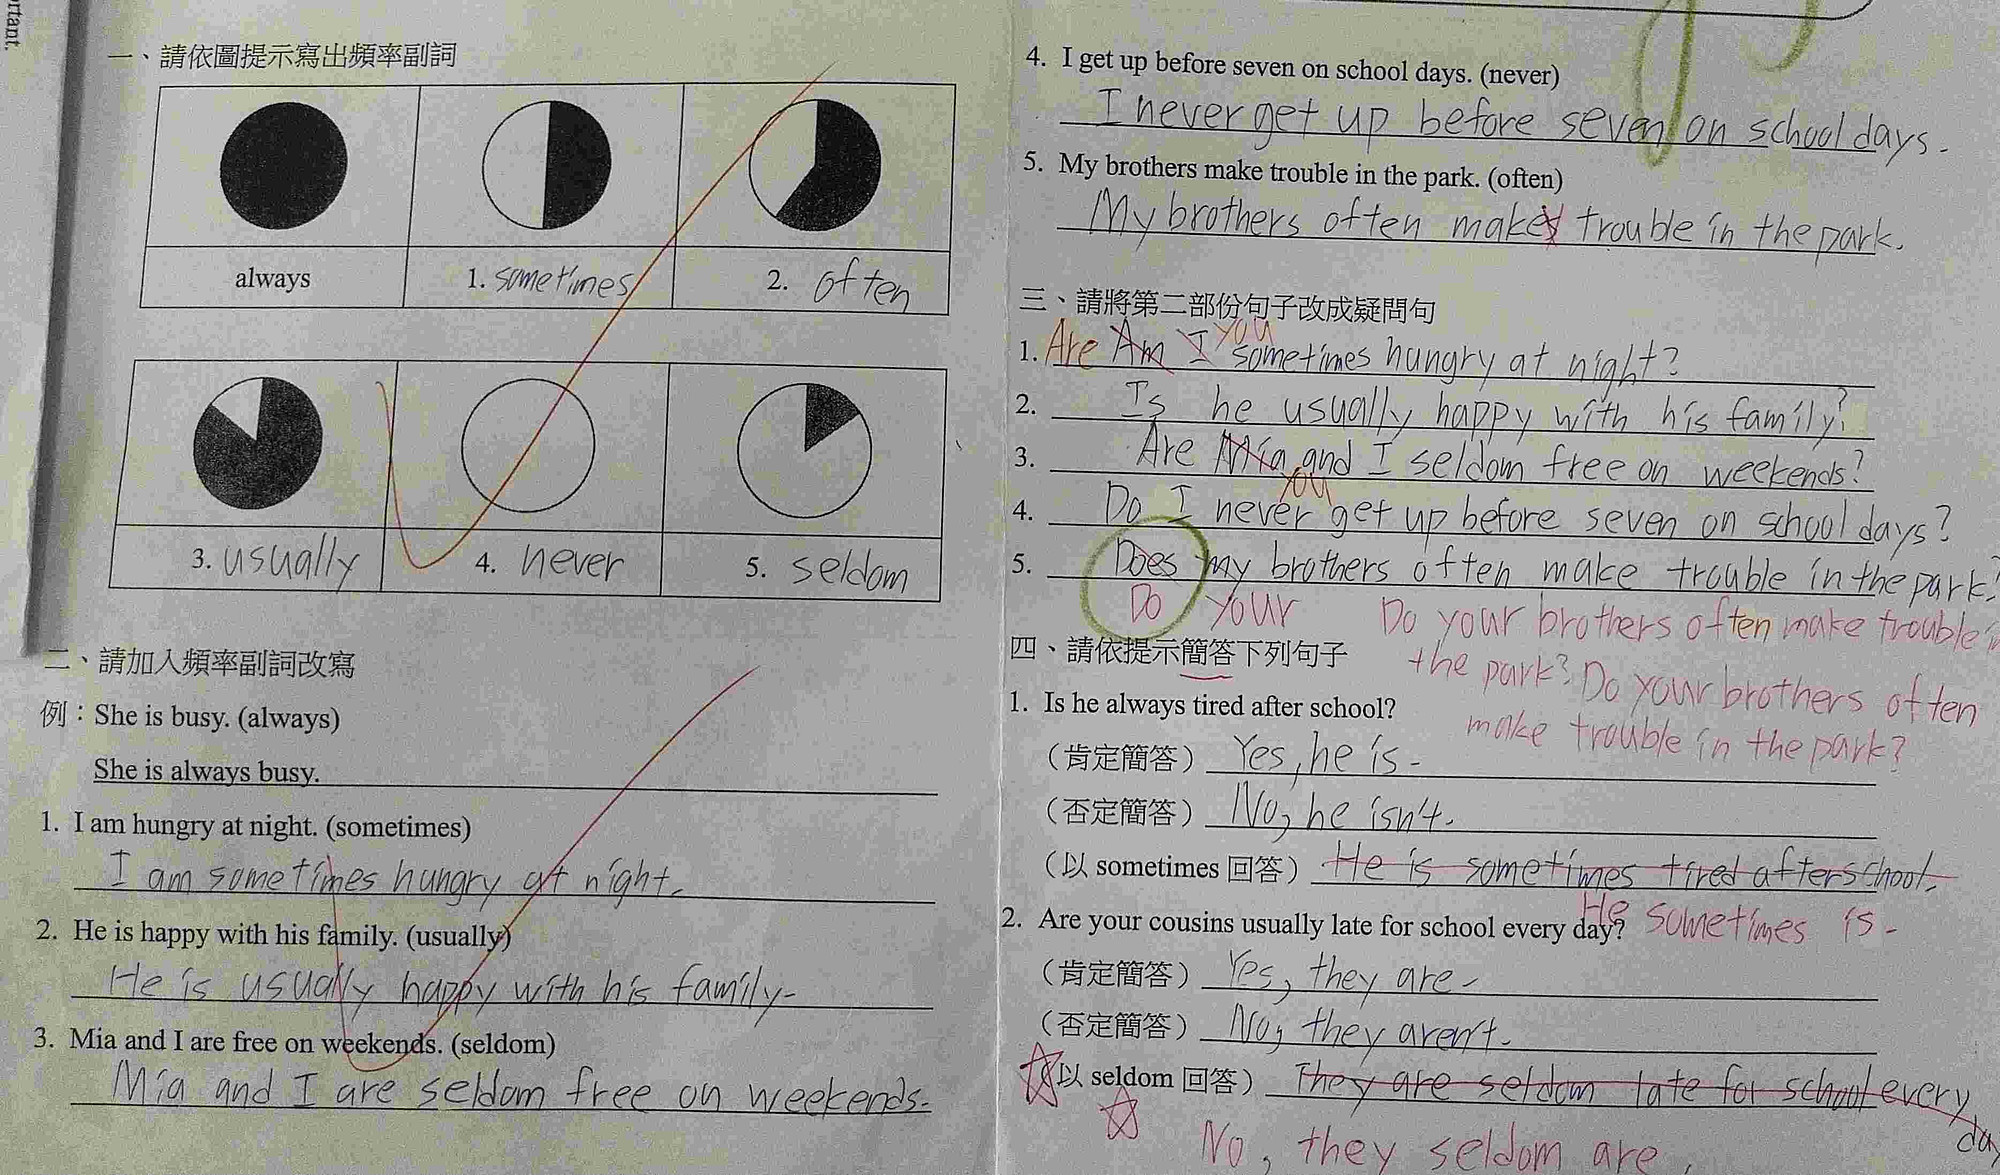 ortant.
一、請依圖提示寫出頻率副詞
always 1. sometimes 2. often
3. usually 4. never 5. seldom
二、請加入頻率副詞改寫
例：She is busy. (always)
She is always busy.
1. I am hungry at night. (sometimes)
I am sometimes hungry at night.
2. He is happy with his family. (usually)
He is usually happy with his family.
3. Mia and I are free on weekends. (seldom)
Mia and I are seldom free on weekends.
4. I get up before seven on school days. (never)
I never get up before seven on school days.
5. My brothers make trouble in the park. (often)
My brothers often makes trouble in the park.
三、請將第二部份句子改成疑問句
you
1. Are Am I sometimes hungry at night?
2. Is he usually happy with his family?
3. Are Mia and I seldom free on weekends?
you
4. Do I never get up before seven on school days?
5. Does my brothers often make trouble in the park?
Do your Do your brothers often make trouble in
the park? Do your brothers often
make trouble in the park?
四、請依提示簡答下列句子
1. Is he always tired after school?
（肯定簡答）Yes, he is.
（否定簡答）No, he isn't.
（以 sometimes 回答）He is sometimes tired after school.
He sometimes is.
2. Are your cousins usually late for school every day?
（肯定簡答）Yes, they are.
（否定簡答）No, they aren't.
（以 seldom 回答）They are seldom late for school every
day
No, they seldom are.